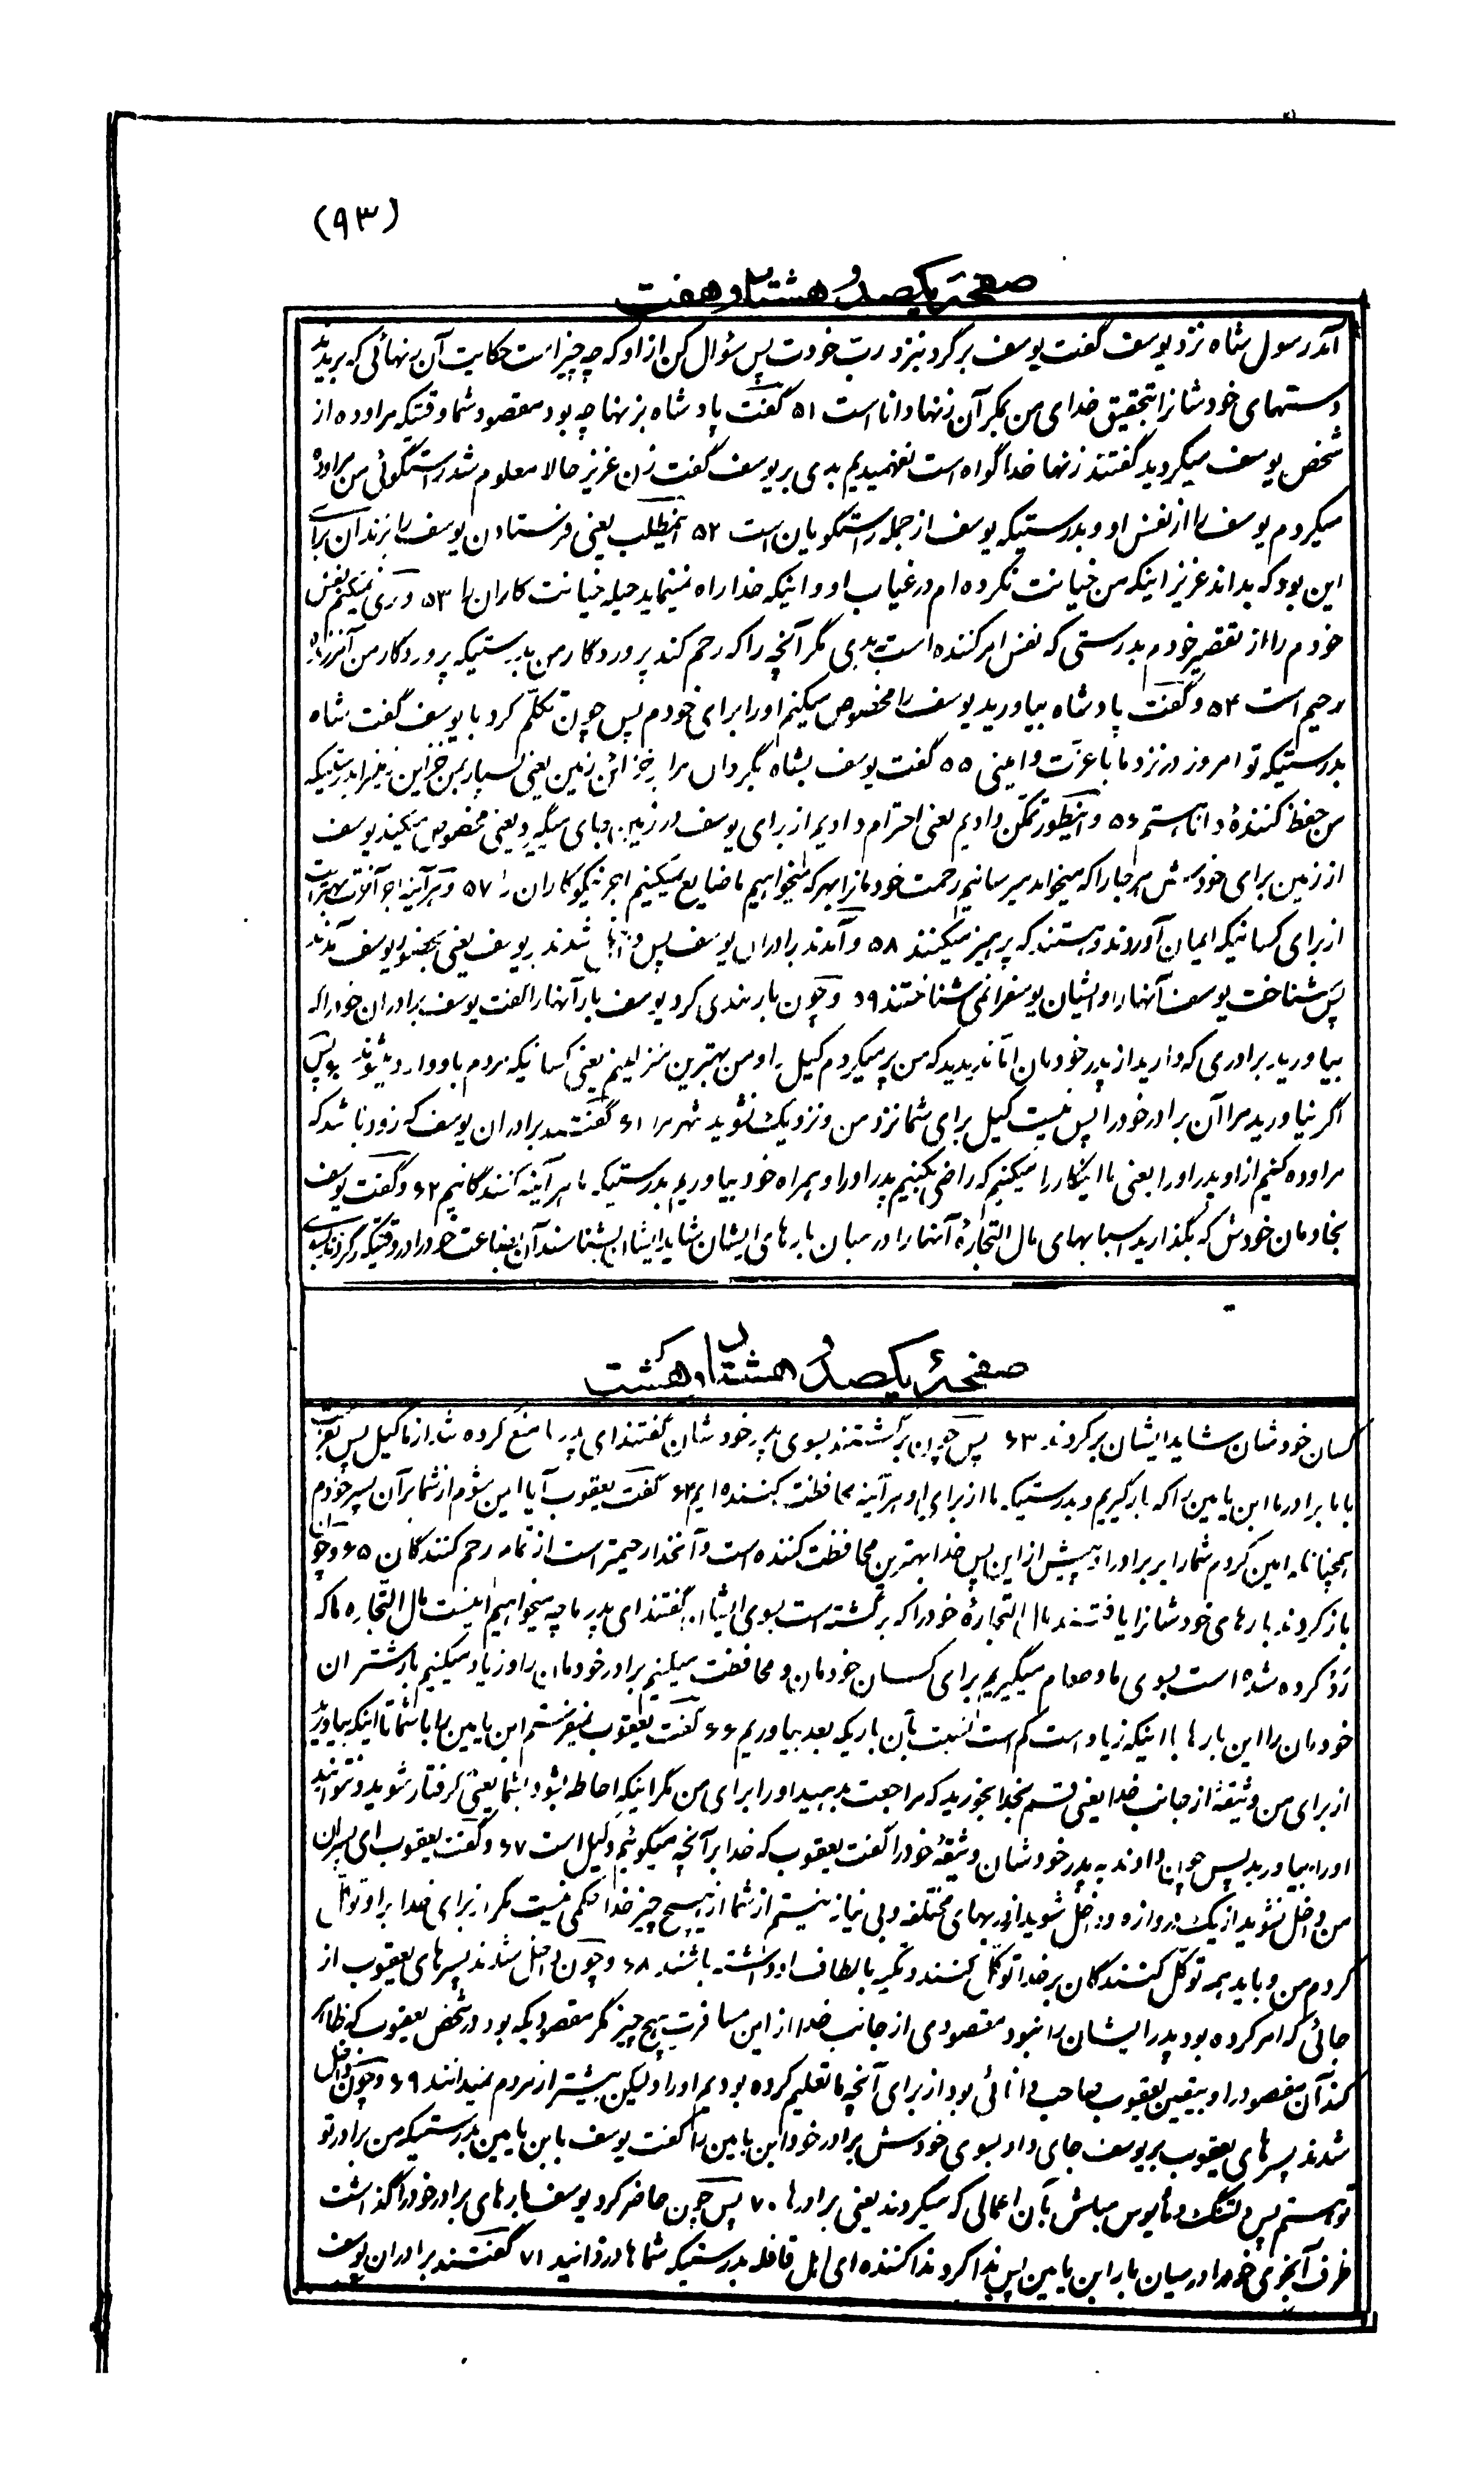 (۹۳)
صفحهٔ یکصد و هشتاد و هفت
آمد رسول شاه نزد یوسف گفت یوسف برگرد بنزد رب خودت پس سؤال کن از او که چه چیز است حکایت آن زنهائی که بریدند
دستهای خودشانرا بتحقیق خدای من بمکر آن زنها دانا است ۵۱ گفت پادشاه بزنها چه بود مقصود شما وقتیکه مراوده از
شخص یوسف میکردید گفتند زنها خدا گواه است نفهمیدیم بدی بر یوسف گفت زن عزیز حالا معلوم شد راستگوئی من مراوده
میکردم یوسف را از نفس او و بدرستیکه یوسف از جمله راستگویان است ۵۲ اینمطلب یعنی فرستادن یوسف را بزندان برای
این بود که بداند عزیز اینکه من خیانت نکرده ام در غیاب او و اینکه خدا راه نمینماید حیله خیانت کاران را ۵۳ و بری نمیکنم نفس
خودم را از تقصیر خودم بدرستی که نفس امر کننده است ببدی مگر آنچه را که رحم کند پروردگار من بدرستیکه پروردگار من آمرزنده
رحیم است ۵۴ و گفت پادشاه بیاورید یوسف را مخصوص میکنم او را برای خودم پس چون تکلّم کرد با یوسف گفت شاه
بدرستیکه تو امروز در نزد ما با عزّت و امینی ۵۵ گفت یوسف بشاه بگردان مرا بر خزائن زمین یعنی بسپار بمن خزاین زمین را بدرستیکه
من حفظ کنندهٔ دانا هستم ۵۶ و اینطور تمکّن دادیم یعنی احترام دادیم از برای یوسف در زمین جای میگیرد یعنی مخصوص میکند یوسف
از زمین برای خودش هر جا را که میخواهد میرسانیم رحمت خودمانرا بهر که میخواهیم ما ضایع نمیکنیم اجر نیکوکاران را ۵۷ و هر آینه اجر آخرت بهتر است
از برای کسانیکه ایمان آوردند و هستند که پرهیز میکنند ۵۸ و آمدند برادران یوسف پس داخل شدند بر یوسف یعنی بحضور یوسف آمدند
پس شناخت یوسف آنها را و ایشان یوسفرا نمی شناختند ۵۹ و چون باربندی کرد یوسف بار آنها را گفت یوسف برادران خود را که
بیاورید برادری که دارید از پدر خودمان آیا ندیدید که من پر میکردم کیل را و من بهترین منزلینم یعنی کسانیکه مردم باو وارد میشوند ۶۰ پس
اگر نیاورید مرا آن برادر خود را پس نیست کیل برای شما نزد من و نزدیک نشوید شهر مرا ۶۱ گفتند برادران یوسف که زود باشد که
مراوده کنیم از او پدر او را یعنی ما اینکار را میکنیم که راضی بکنیم پدر او را و همراه خود بیاوریم بدرستیکه ما هر آینه کنندگانیم ۶۲ و گفت یوسف
بخادمان خودش که بگذارید اسبابهای مال التجارهٔ آنها را در میان بارهای ایشان شاید ایشان بشناسند آن بضاعت خود را در وقتیکه برگردند بسوی
صفحهٔ یکصد و هشتاد و هشت
کسان خودشان شاید ایشان برگردند ۶۳ پس چون برگشتند بسوی پدر خودشان گفتند ای پدر ما منع کرده شد از ما کیل پس بفرست
با ما برادر ما ابن یامین را که بار گیریم و بدرستیکه ما از برای او هر آینه محافظت کننده ایم ۶۴ گفت یعقوب آیا امین شوم از شما بر آن پسر خودم
همچنانکه امین کردم شما را بر برادر او پیش از این پس خدا بهترین محافظت کننده است و آنخدا رحیمتر است از تمام رحم کنندگان ۶۵ و چون
باز کردند بارهای خودشانرا یافتند مال التجارهٔ خود را که برگشته است بسوی ایشان گفتند ای پدر ما چه میخواهیم اینست مال التّجاره ما که
ردّ کرده شده است بسوی ما و طعام میگیریم برای کسان خودمان و محافظت میکنیم برادر خودمان را و زیاد میکنیم بار شتران
خودمان را این بارها با اینکه زیاد است کم است نسبت بآن باریکه بعد بیاوریم ۶۶ گفت یعقوب نمیفرستم ابن یامین را با شما تا اینکه بیاورید
از برای من وثیقهٔ از جانب خدا یعنی قسم بخدا بخورید که مراجعت بدهید او را برای من مگر اینکه احاطه بشود بشما یعنی گرفتار شوید و نتوانید
او را بیاورید پس چون دادند به پدر خودشان وثیقهٔ خود را گفت یعقوب که خدا بر آنچه میگوئیم وکیل است ۶۷ و گفت یعقوب ای پسران
من داخل نشوید از یک دروازه و داخل شوید از دربهای مختلفه و بی نیاز نیستم از شما از هیچ چیز خدا حکمی نیست مگر از برای خدا بر او توکّل
کردم من و باید همه توکّل کنندگان بر خدا توکّل کنند و تکیه بالطاف او داشته باشند ۶۸ و چون داخل شدند پسرهای یعقوب از
جائی که امر کرده بود پدر ایشان را نبود مقصودی از جانب خدا از این مسافرت هیچ چیز مگر مقصودیکه بود در شخص یعقوب که ظاهر
کند آن مقصود را و بیقین یعقوب صاحب دانائی بود از برای آنچه ما تعلیم کرده بودیم او را و لیکن بیشتر از مردم نمیدانند ۶۹ و چون داخل
شدند پسرهای یعقوب بر یوسف جای داد بسوی خودش برادر خود ابن یامین را گفت یوسف بابن یامین بدرستیکه من برادر تو
تو هستم پس دلتنگ و مأیوس مباش بآن اعمالی که میکردند یعنی برادرها ۷۰ پس چون حاضر کرد یوسف بارهای برادر خود را گذاشت
ظرف آبخوری خود را در میان بار ابن یامین پس ندا کرد ندا کننده ای اهل قافله بدرستیکه شماها دزدانید ۷۱ گفتند برادران یوسف